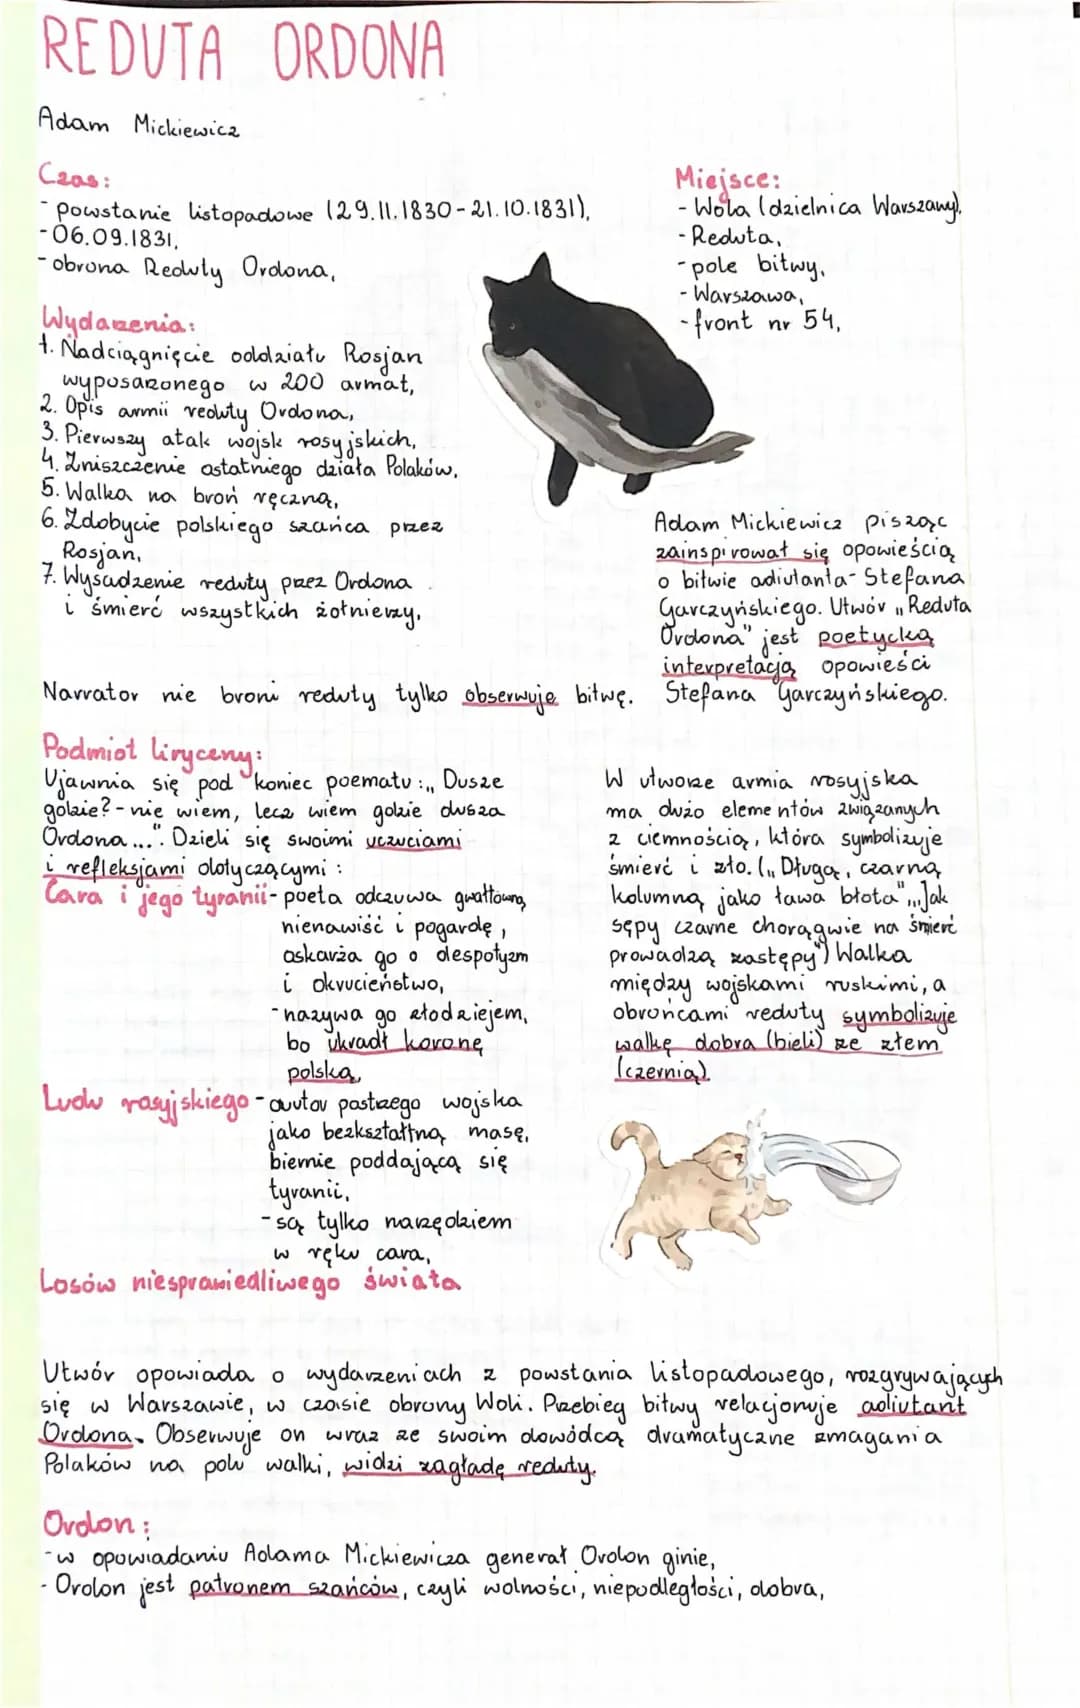 REDUTA ORDONA
Adam Mickiewicz
Czas:
- powstanie listopadowe (29.11.1830-21.10.1831),
- 06.09.1831,
- obrona Reduty Ordona,
Miejsce:
- Wola (dzielnica Warszawy),
- Reduta,
- pole bitwy,
- Warszawa,
- front nr 54,
Wydarzenia:
1. Nadciągnięcie oddziału Rosjan
wyposażonego w 200 armat,
2. Opis armii reduty Ordona,
3. Pierwszy atak wojsk rosyjskich,
4. Zniszczenie ostatniego działa Polaków,
5. Walka na broń ręczną,
6. Zdobycie polskiego szańca przez
Rosjan,
7. Wysadzenie reduty przez Ordona
i śmierć wszystkich żołnierzy,
Adam Mickiewicz pisząc
zainspirował się opowieścią
o bitwie adiutanta- Stefana
Garczyńskiego. Utwór „Reduta
Ordona" jest poetycką
interpretacją opowieści
Stefana Garczyńskiego.
Narrator nie broni reduty tylko obserwuje bitwę.
Podmiot liryczny:
Ujawnia się pod koniec poematu: „Dusze
gdzie? - nie wiem, lecz wiem gdzie dusza
Ordona...". Dzieli się swoimi uczuciami
i refleksjami dotyczącymi:
Cara i jego tyranii- poeta odczuwa gwałtowną
nienawiść i pogardę,
oskarża go o despotyzm
i okrucieństwo,
- nazywa go złodziejem,
bo ukradł koronę
polską,
Ludu rosyjskiego - autor postrzega wojska
jako bezkształtną masę,
biernie poddającą się
tyranii,
- są tylko narzędziem
w ręku cara,
Losów niesprawiedliwego świata
W utworze armia rosyjska
ma dużo elementów związanych
z ciemnością, która symbolizuje
śmierć i zło. („Długą, czarną
kolumną jako ława błota", „Jak
sępy czarne chorągwie na śmierć
prowadzą zastępy") Walka
między wojskami ruskimi, a
obrońcami reduty symbolizuje
walkę dobra (bieli) ze złem
(czernią).
Utwór opowiada o wydarzeniach z powstania listopadowego, rozgrywających
się w Warszawie, w czasie obrony Woli. Przebieg bitwy relacjonuje adiutant
Ordona. Obserwuje on wraz ze swoim dowódcą dramatyczne zmagania
Polaków na polu walki, widzi zagładę reduty.
Ordon:
- w opowiadaniu Adama Mickiewicza generał Ordon ginie,
- Ordon jest patronem szańców, czyli wolności, niepodległości, dobra,